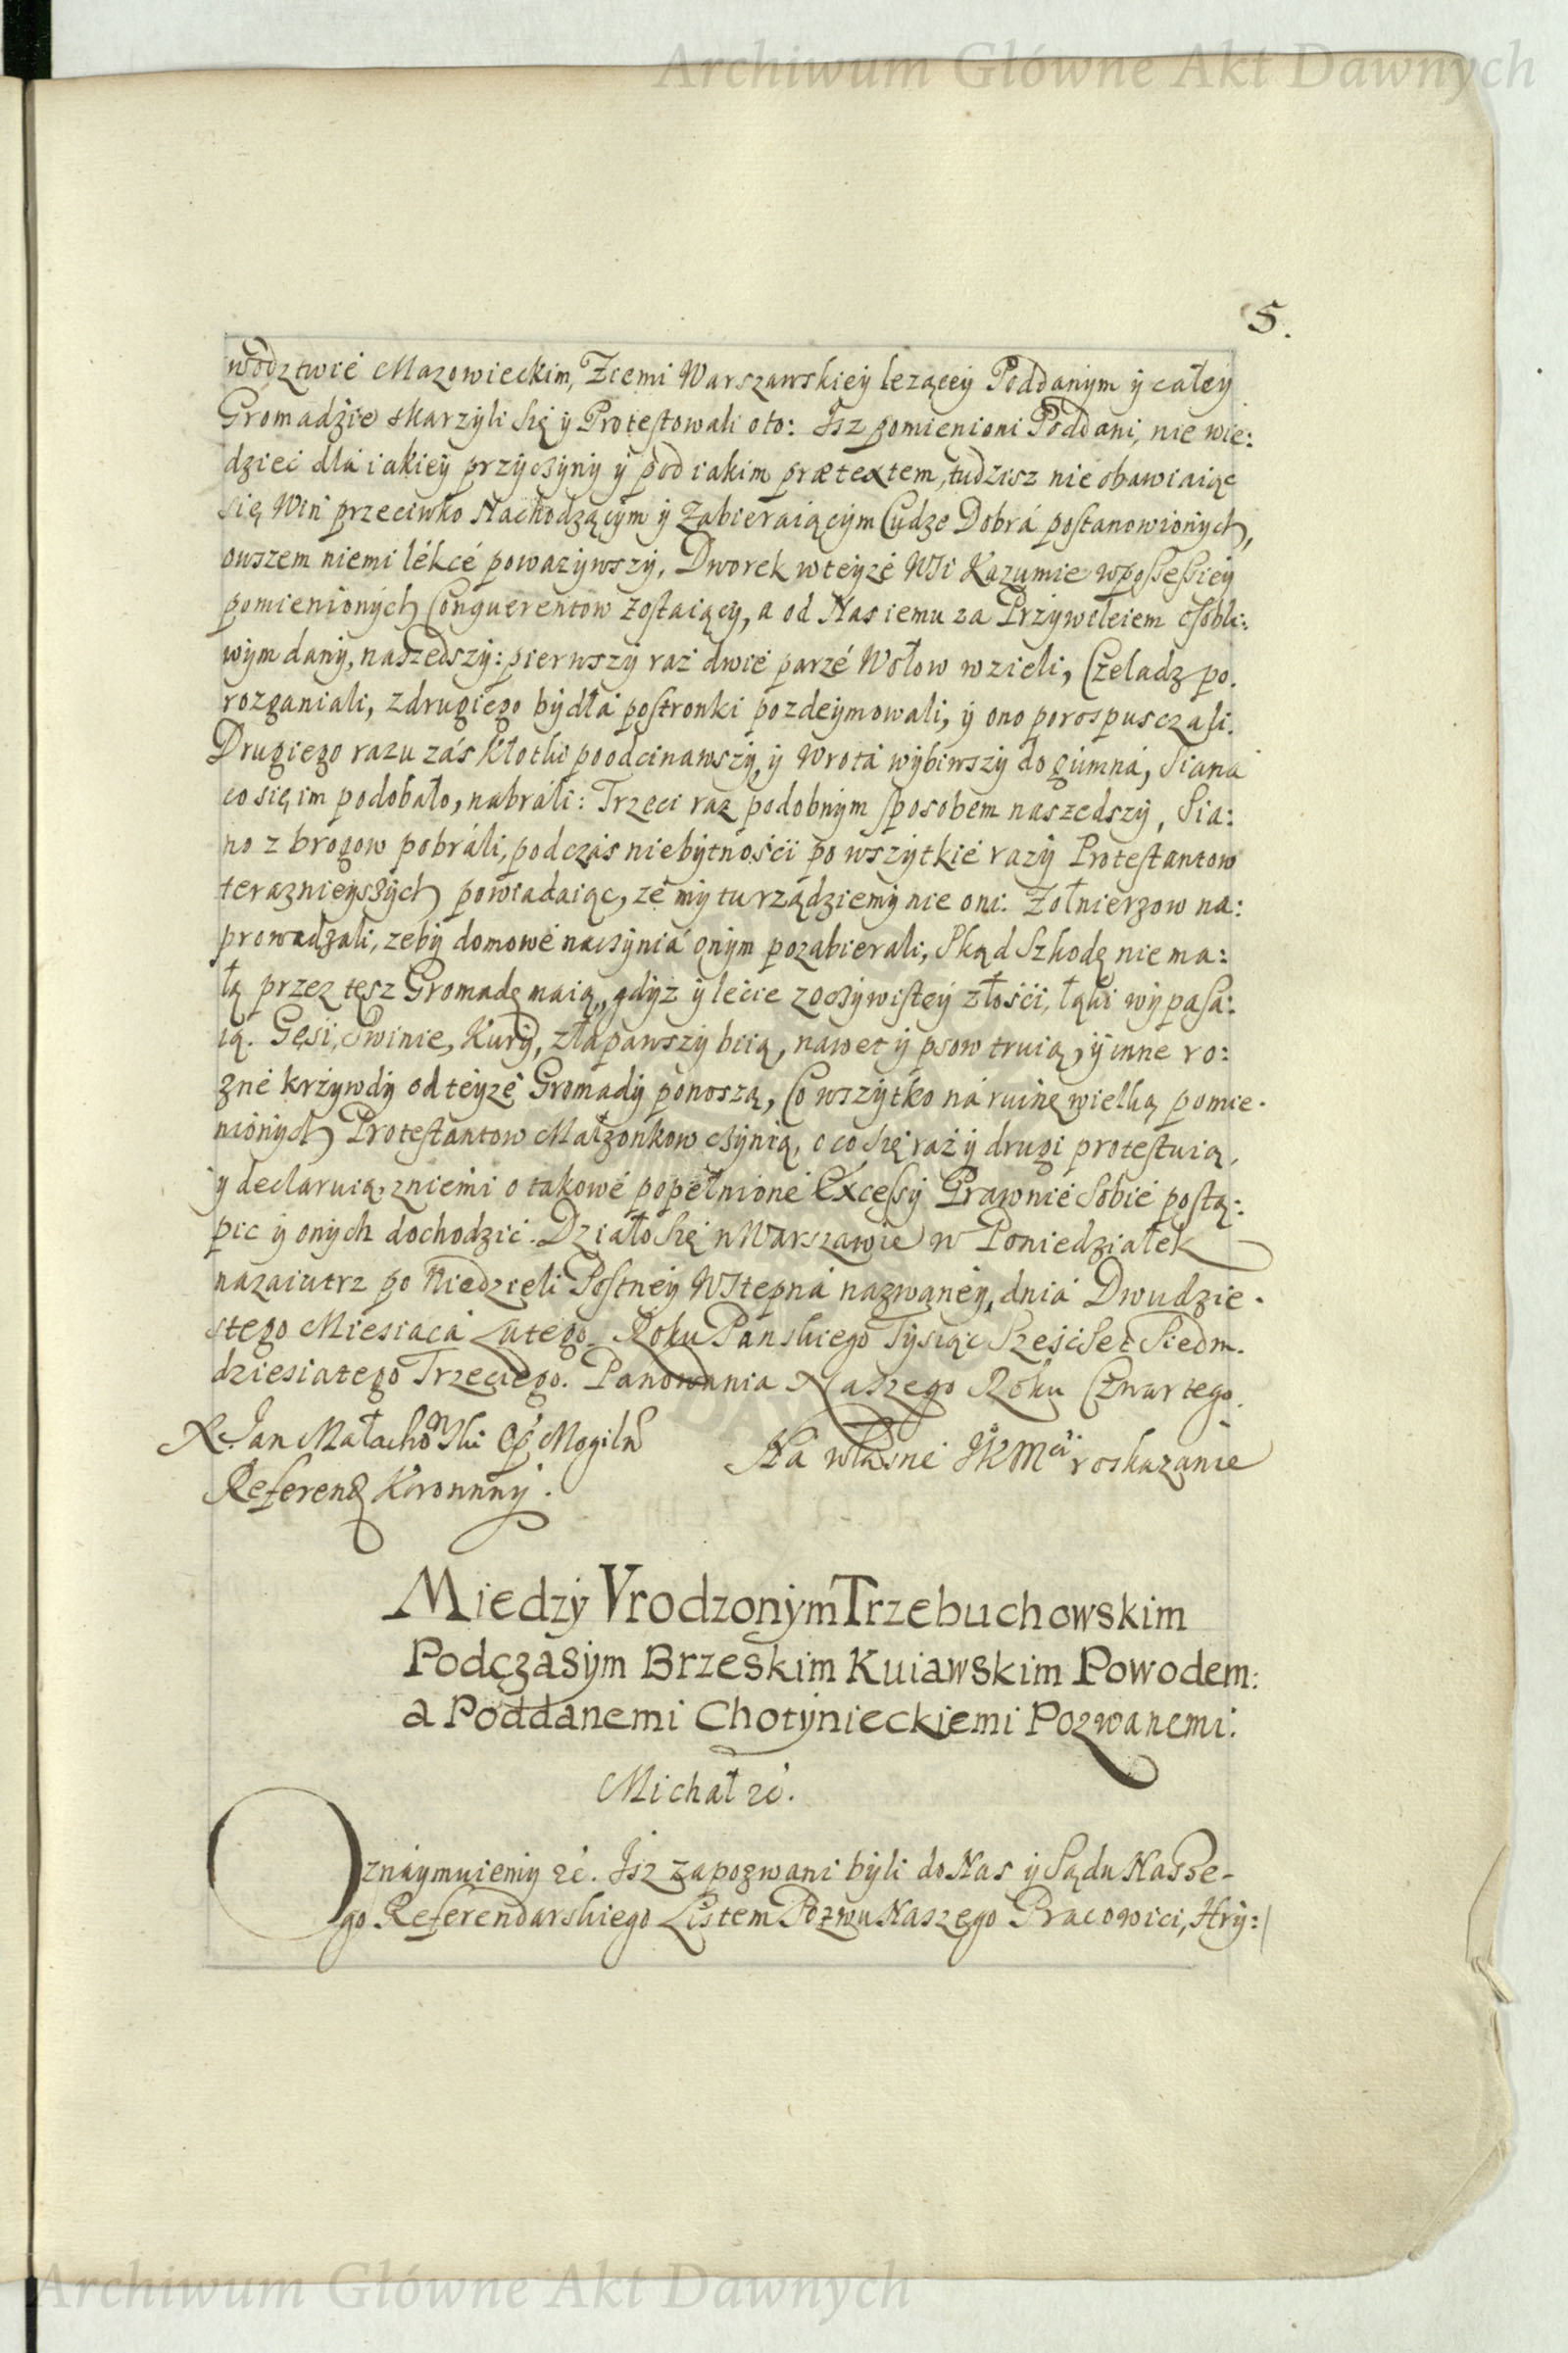 Archiwum Główne Akt Dawnych
5.
wodztwie Mazowieckim, Ziemi Warszawskiey lezącey Poddanym y całey
Gromadzie skarzyli się y Protestowali oto: Isz pomienioni Poddani, nie wie:
dzieć dla iakiey przyczyny y pod iakim prætextem, tudzisz nie obawiaiąc
się Win przeciwko Nachodzącym y Zabieraiącym Cudze Dobrá postanowionych,
owszem niemi lékcé powazywszy, Dworek wteyze Wsi Kazumie wpossessiey
pomienionych Conquerentow zostaiący, a od Nas iemu za Przywileiem osobli:
wym dany, naszedszy: pierwszy raz dwie parzé Wołow wzieli, Czeladz po.
rozganiali, zdrugiego bydłá postronki pozdeymowali, y ono porospusczali.
Drugiego razu zás kłotki poodcinawszy, y Wrotá wybiwszy do gumná, Siana
co się im podobało, nabráli: Trzeci raz podobnym sposobem naszedszy, Sia:
no z brogow pobráli, podczás niebytności po wszytkie razy Protestantow
teraznieyszych powiadaiąc, ze my tu rządziemy nie oni. Zołnierzow na:
prowadzali, zeby domowe naczynia onym pozabierali, Skąd Szkodę nie ma:
łą przez tęsz Gromadę maią, gdyz y lecie zoczywistey złości, łąki wypasa:
ią. Gęsi, Swinie, Kury, złapawszy biią, nawet y psow truią, y inne ro:
zné krzywdy od teyzé Gromady ponoszą, Co wszytko ná ruinę wielką pomie.
nionych Protestantow Małzonkow czynią, o co się raz y drugi protestuią,
y declaruią, zniemi o takowé popełnioné Excessy Prawnie Sobié postą:
pic y onych dochodzić. Działo się w Warszawie w Poniedziałek
nazaiutrz po Niedzieli Postney Wstępna nazwaney, dniá Dwudzie.
stego Miesiaca Lutego. Roku Panskiego Tysiąc Sześćset Siedm.
dziesiatego Trzeciego. Panowania Naszego Roku Czwartego.
X Jan Małachowski Op Mogiln
Na własne JKMci roskazanie
Referend Koronny.
Miedzy Vrodzonym Trzebuchowskim
Podczasym Brzeskim Kuiawskim Powodem:
a Poddanemi Chotynieckiemi Pozwanemi:
Michał &c.
Oznaymuiemy &c. Isz zapozwani byli do Nas y Sądu Nasze-
go Referendarskiego Listem Pozwu Naszego Pracowici, Hry:
Archiwum Główne Akt Dawnych